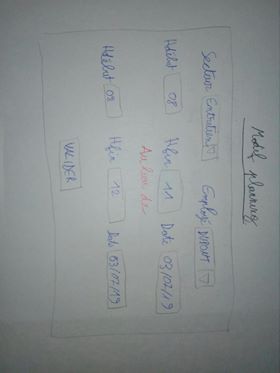 Modif planning
Secteur Entretien Employé DUPONT
Hdébut 08 Hfin 11 Date 03/07/19
Au lieu de
Hdébut 09 Hfin 12 Date 03/07/19
VALIDER